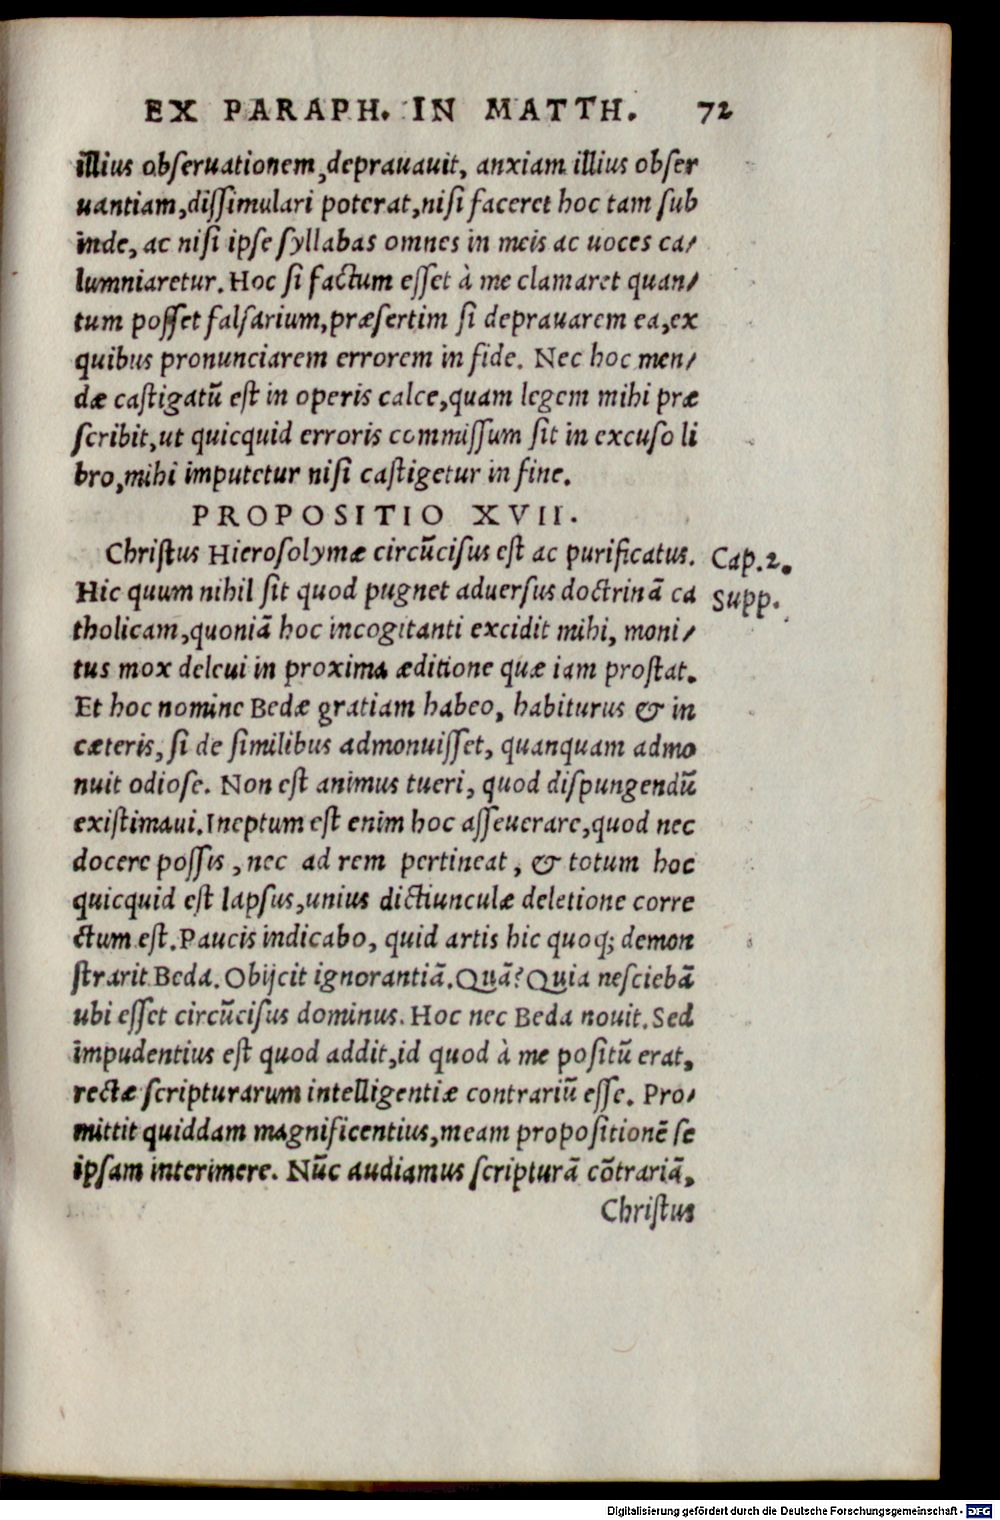 EX PARAPH. IN MATTH. 72
illius obſeruationem, deprauauit, anxiam illius obſer
uantiam, diſſimulari poterat, niſi faceret hoc tam ſub
inde, ac niſi ipſe ſyllabas omnes in meis ac uoces ca-
lumniaretur. Hoc ſi factum eſſet à me clamaret quan-
tum poſſet falſarium, præſertim ſi deprauarem ea, ex
quibus pronunciarem errorem in fide. Nec hoc men-
dæ caſtigatũ eſt in operis calce, quam legem mihi præ
ſcribit, ut quicquid erroris commiſſum ſit in excuſo li
bro, mihi imputetur niſi caſtigetur in fine.
PROPOSITIO XVII.
Chriſtus Hieroſolymæ circũciſus eſt ac purificatus. Cap. 2.
Hic quum nihil ſit quod pugnet aduerſus doctrinã ca Supp.
tholicam, quoniã hoc incogitanti excidit mihi, moni-
tus mox deleui in proxima æditione quæ iam proſtat.
Et hoc nomine Bedæ gratiam habeo, habiturus & in
cæteris, ſi de ſimilibus admonuiſſet, quanquam admo
nuit odioſe. Non eſt animus tueri, quod diſpungendũ
exiſtimaui. Ineptum eſt enim hoc aſſeuerare, quod nec
docere poſſis, nec ad rem pertineat, & totum hoc
quicquid eſt lapſus, unius dictiunculæ deletione corre
ctum eſt. Paucis indicabo, quid artis hic quoq; demon
ſtrarit Beda. Obijcit ignorantiã. Quã? Quia neſciebã
ubi eſſet circũciſus dominus. Hoc nec Beda nouit. Sed
impudentius eſt quod addit, id quod à me poſitũ erat,
rectæ ſcripturarum intelligentiæ contrariũ eſſe. Pro-
mittit quiddam magnificentius, meam propoſitionẽ ſe
ipſam interimere. Nũc audiamus ſcripturã cõtrariã,
Chriſtus
Digitalisierung gefördert durch die Deutsche Forschungsgemeinschaft - DFG